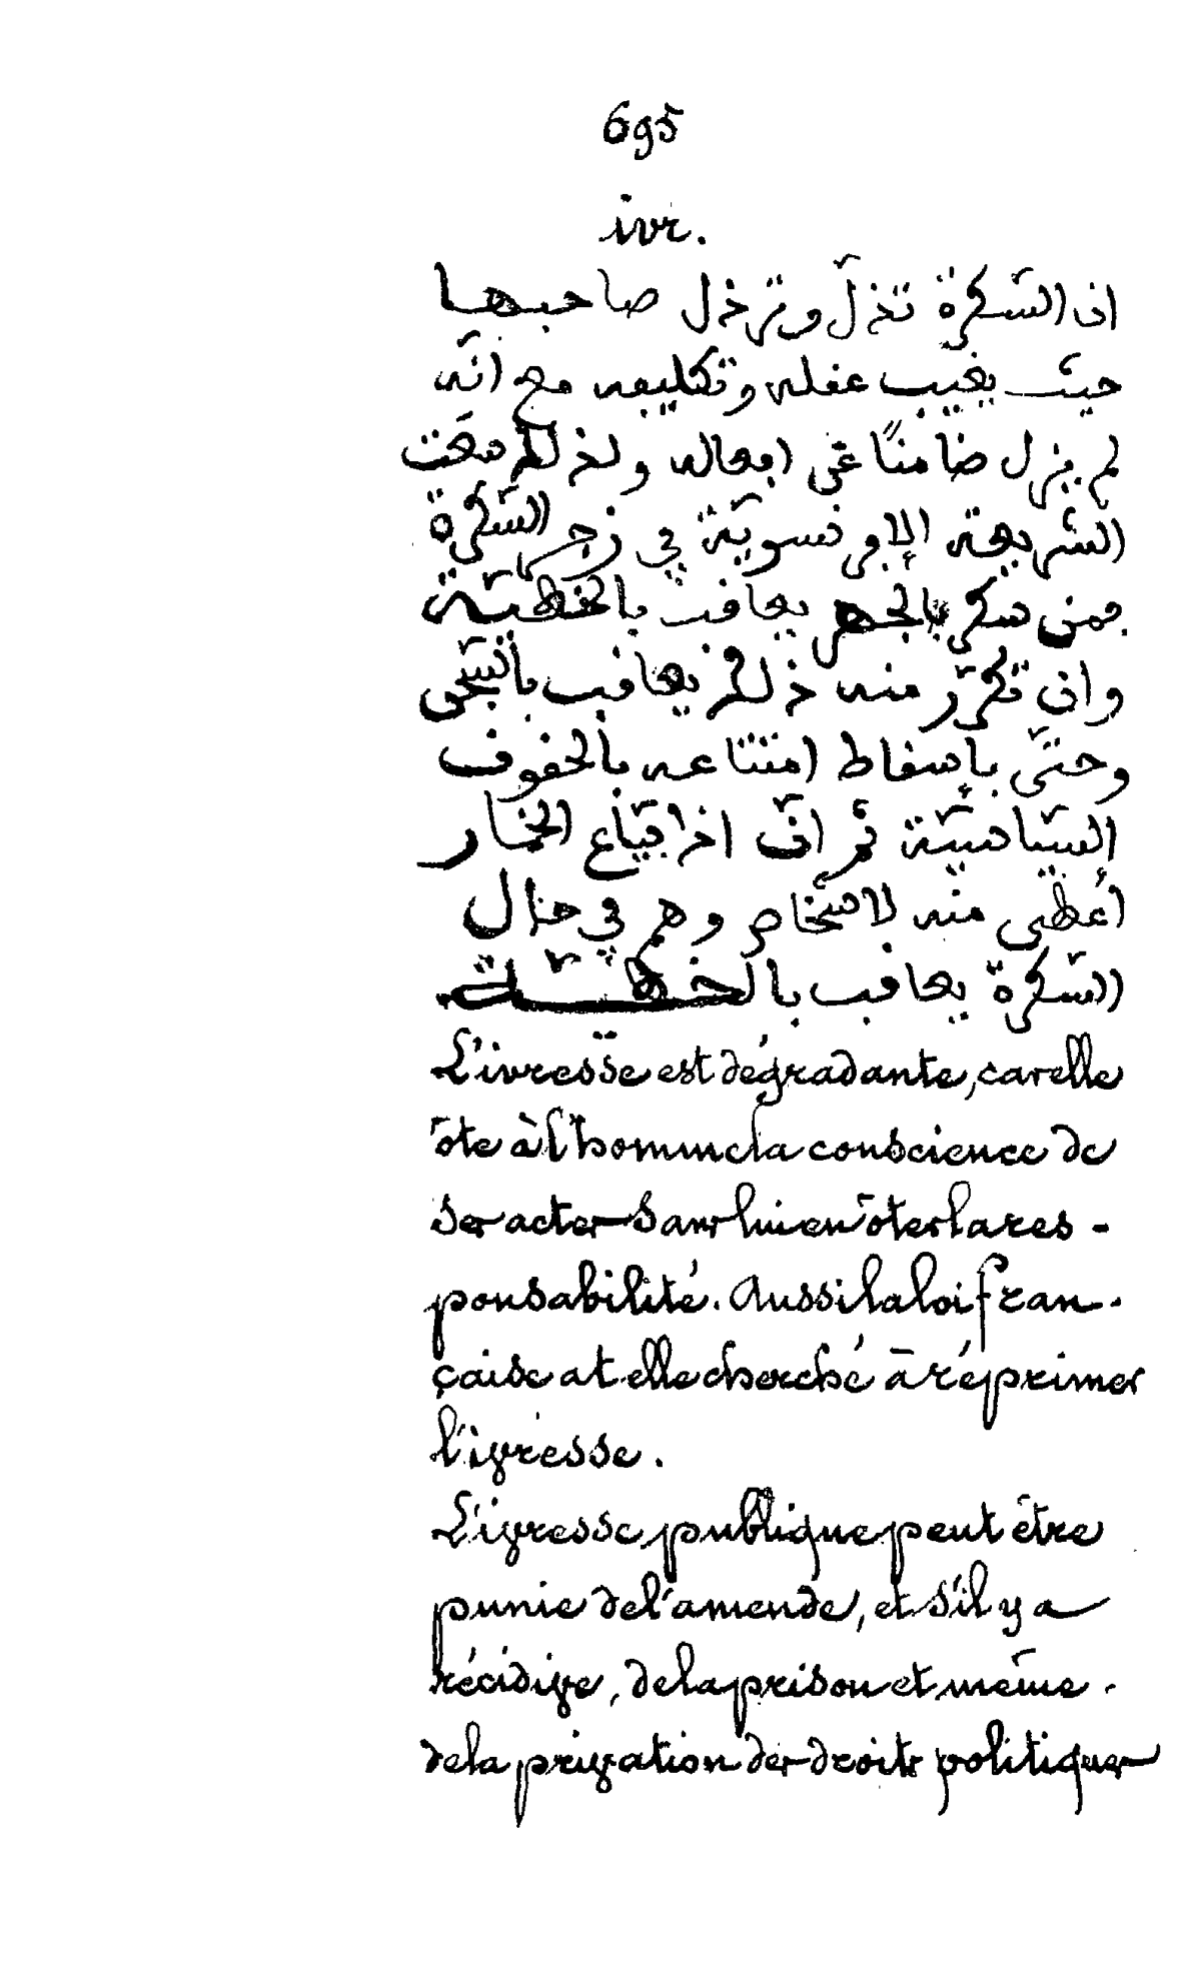 695
ivr.
ان السّكرة تذلّ وترذل صاحبها
حيث يغيب عقله وتكليفه مع انّه
لم يزل ضامنًا عن افعاله ولذلك سعت
الشريعة الإفرنسويّة في زجر السّكرة
فمن سكر بالجهر يعاقب بالخطيّة
وان تكرّر منه ذلك يعاقب بالسّجن
وحتّى بإسقاط امتناعه بالحقوق
السّياسيّة ثمّ انّ اذا بيّاع الخمّار
أعطى منه لاشخاص وهم في حال
السّكرة يعاقب بالخطيّة.
L'ivresse est dégradante, car elle
ôte à l'homme la conscience de
ses actes sans lui en ôter la res-
ponsabilité. Aussi la loi fran-
çaise a t elle cherché à réprimer
l'ivresse.
L'ivresse publique peut être
punie de l'amende, et s'il y a
récidive, de la prison et même
de la privation des droits politiques